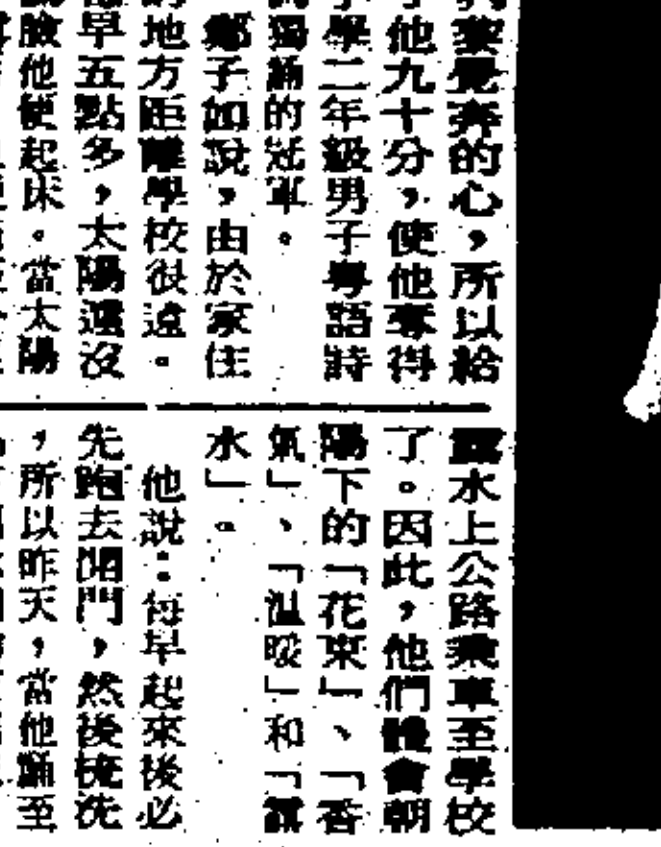 覺奔的心，所以給
他九十分，使他奪得
學二年級男子粵語詩
獨誦的冠軍。
鄭子如說，由於家住
地方距離學校很遠。
早五點多，太陽還沒
臉他便起床。當太陽
露水上公路乘車至學校
了。因此，他們體會朝
陽下的「花束」、「香
氣」、「溫暖」和「露
水」。
他說：每早起來後必
先跑去開門，然後梳洗
，所以昨天，當他誦至